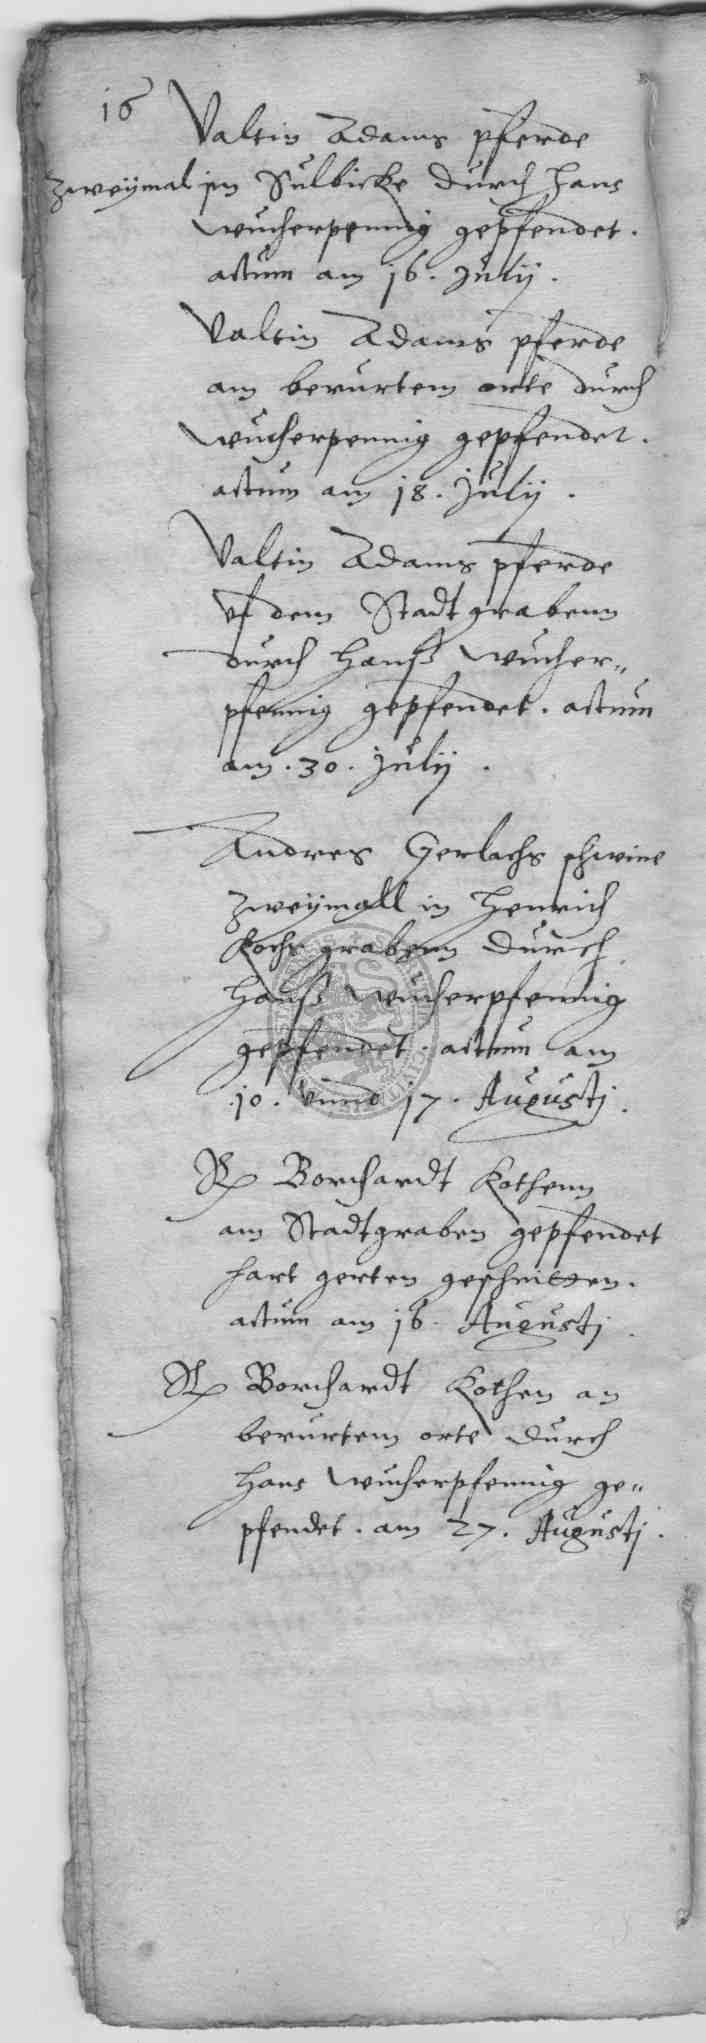 16
Valtin Adams pferde
zweÿmal im Sulbicke durch Hans
wucherpennig gepfendet.
actum am 16. Julij.
Valtin Adams pferde
am berurtem orte durch
wucherpennig gepfendet.
actum am 18. Julij.
Valtin Adams pferde
vf dem Stadtgrabenn
durch Hanß wucher„
pfennig gepfendet. actum
am. 30. Julij.
Andres Gerlachs schwine
zweÿmall in Henrich
Kochs grabenn durch
Hanß wucherpfennig
gepfendet. actum am
.10. vnnd 17. Augustj.
Borchardt Kothenn
am Stadtgraben gepfendet
hart gerten geschnitten.
actum am 16. Augustj.
Borchardt Kothen an
berurtem orte durch
Hans wucherpfennig ge„
pfendet. am 27. Augustj.